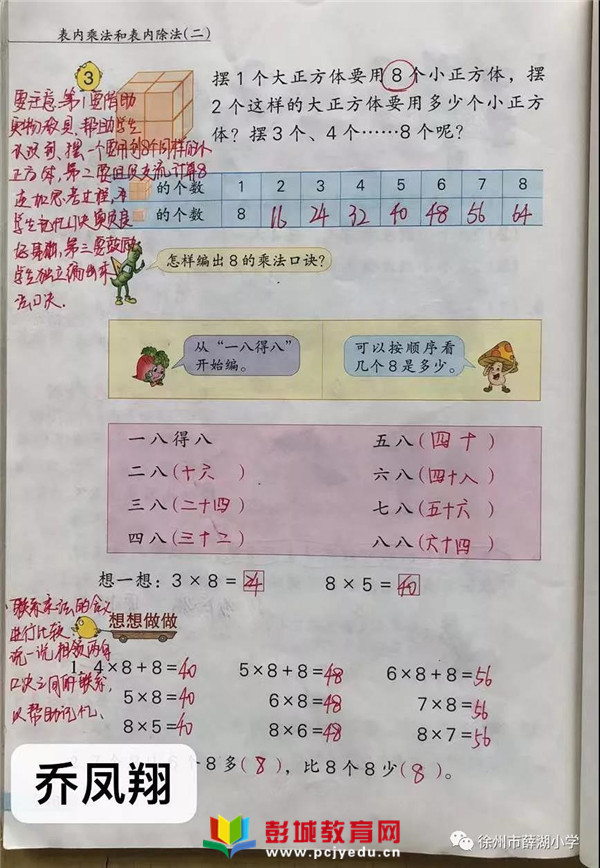 表内乘法和表内除法(二)
3
摆1个大正方体要用8个小正方体，摆
2个这样的大正方体要用多少个小正方
体？摆3个、4个……8个呢？
要注意:第1要借助
实物教具,帮助学生
认识到,摆一个要用到8个同样的小
正方体,第二要组织交流计算8
连加思考过程,
学生记忆口诀奠定良
好基础,第三要鼓励
学生独立编出乘
法口诀.
的个数 1 2 3 4 5 6 7 8
的个数 8 16 24 32 40 48 56 64
怎样编出8的乘法口诀？
从“一八得八”
开始编。
可以按顺序看
几个8是多少。
一八得八 五八(四十)
二八(十六) 六八(四十八)
三八(二十四) 七八(五十六)
四八(三十二) 八八(六十四)
想一想：3×8=24 8×5=40
联系乘法的含义
进行比较
说一说相邻两句
口诀之间的联系,
以帮助记忆、
想想做做
1. 4×8+8=40 5×8+8=48 6×8+8=56
5×8=40 6×8=48 7×8=56
8×5=40 8×6=48 8×7=56
个8多(8)，比8个8少(8)。
乔凤翔
彭城教育网
www.pcjyedu.cn
徐州市薛湖小学